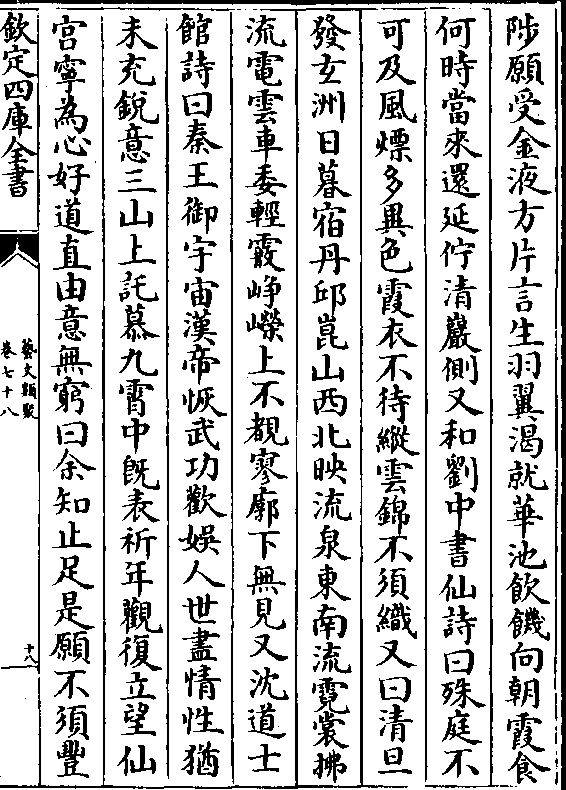 陟願受金液方片言生羽翼渴就華池飲饑向朝霞食
何時當來還延佇清巖側又和劉中書仙詩曰殊庭不
可及風熛多異色霞衣不待縫雲錦不須織又曰清旦
發玄洲日暮宿丹邱崑山西北映流泉東南流霓裳拂
流電雲車委輕霰崢嶸上不覩寥廓下無見又沈道士
館詩曰秦王御宇宙漢帝恢武功歡娛人世盡情性猶
未充銳意三山上託慕九霄中既表祈年觀復立望仙
宮寧為心好道直由意無窮曰余知止足是願不須豐
欽定四庫全書
藝文類聚
卷七十八
十八